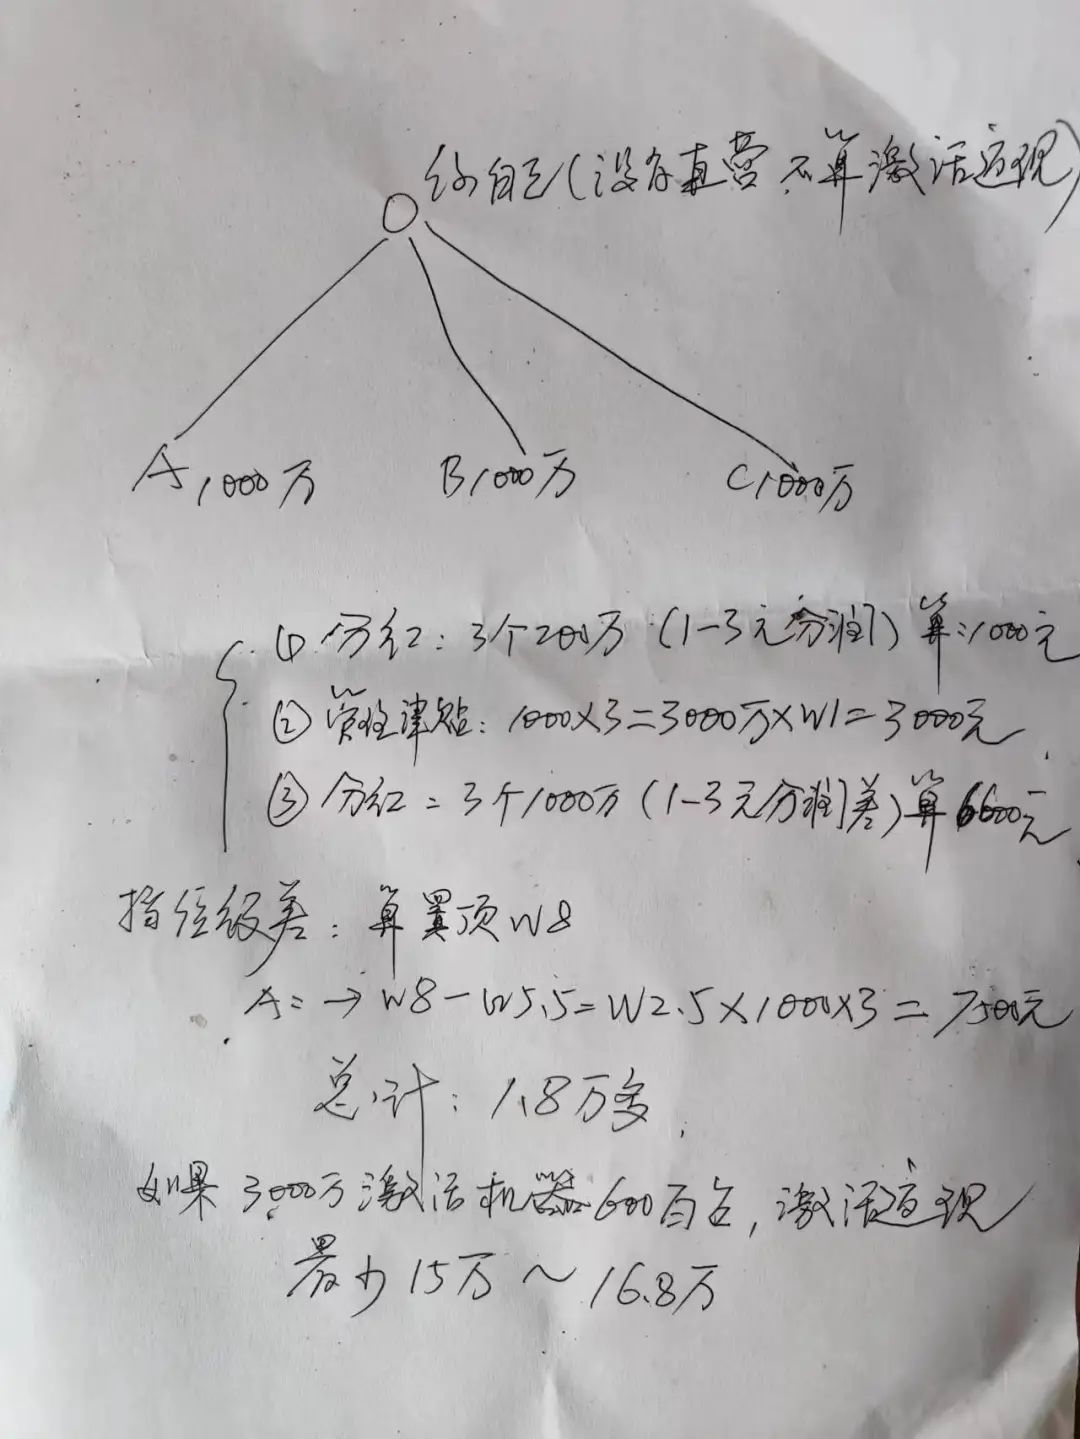 你自己(没有直营不算激活返现)
A 1000万 B 1000万 C 1000万
① 分红：3个200万 (1-3元分润) 算=1000元
② 管理津贴：1000×3=3000万×W1=3000元
③ 分红=3个1000万(1-3元分润差)算6600元
级差：算置顶W8
A=→W8-W5.5=W2.5×1000×3=7500元
总计：1.8万多
如果3000万激活机器600百台,激活返现
最少15万～16.8万